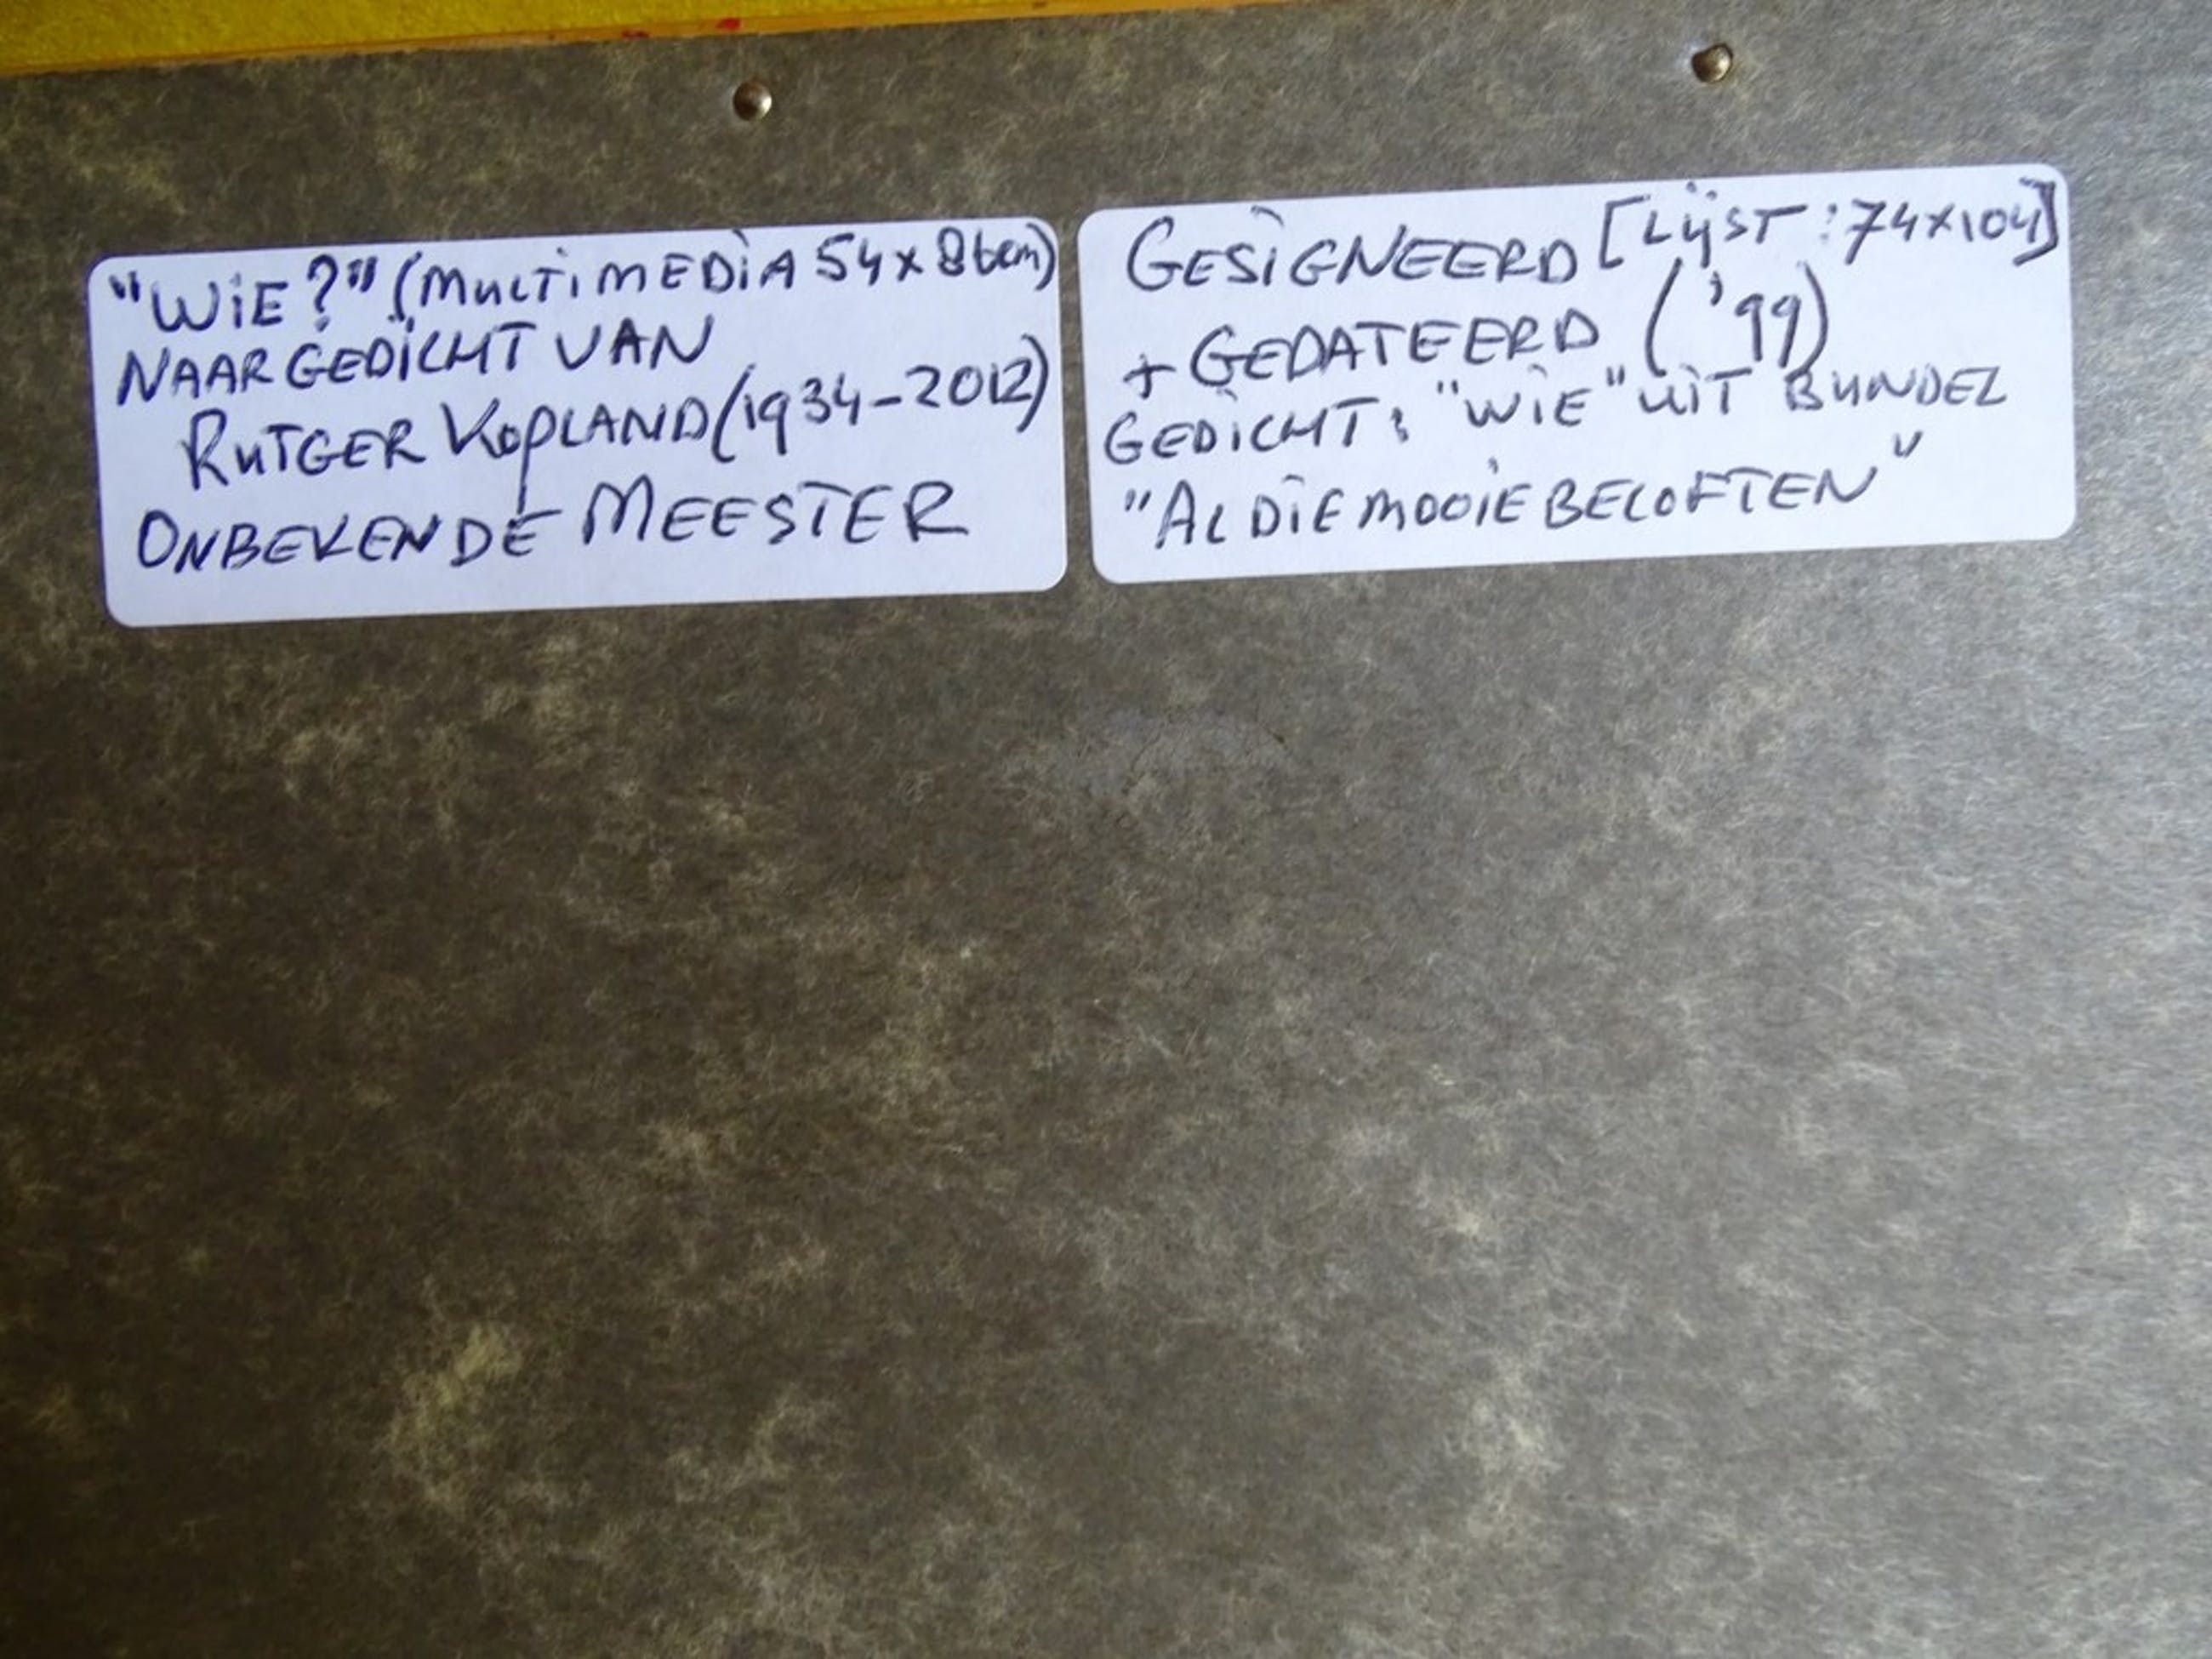 "WIE?" (MULTIMEDIA 54 x 86cm)
NAAR GEDICHT VAN
RUTGER KOPLAND (1934-2012)
ONBEKENDE MEESTER
GESIGNEERD [LIJST: 74x104]
+ GEDATEERD ('99)
GEDICHT: "WIE" UIT BUNDEL
"AL DIE MOOIE BELOFTEN"